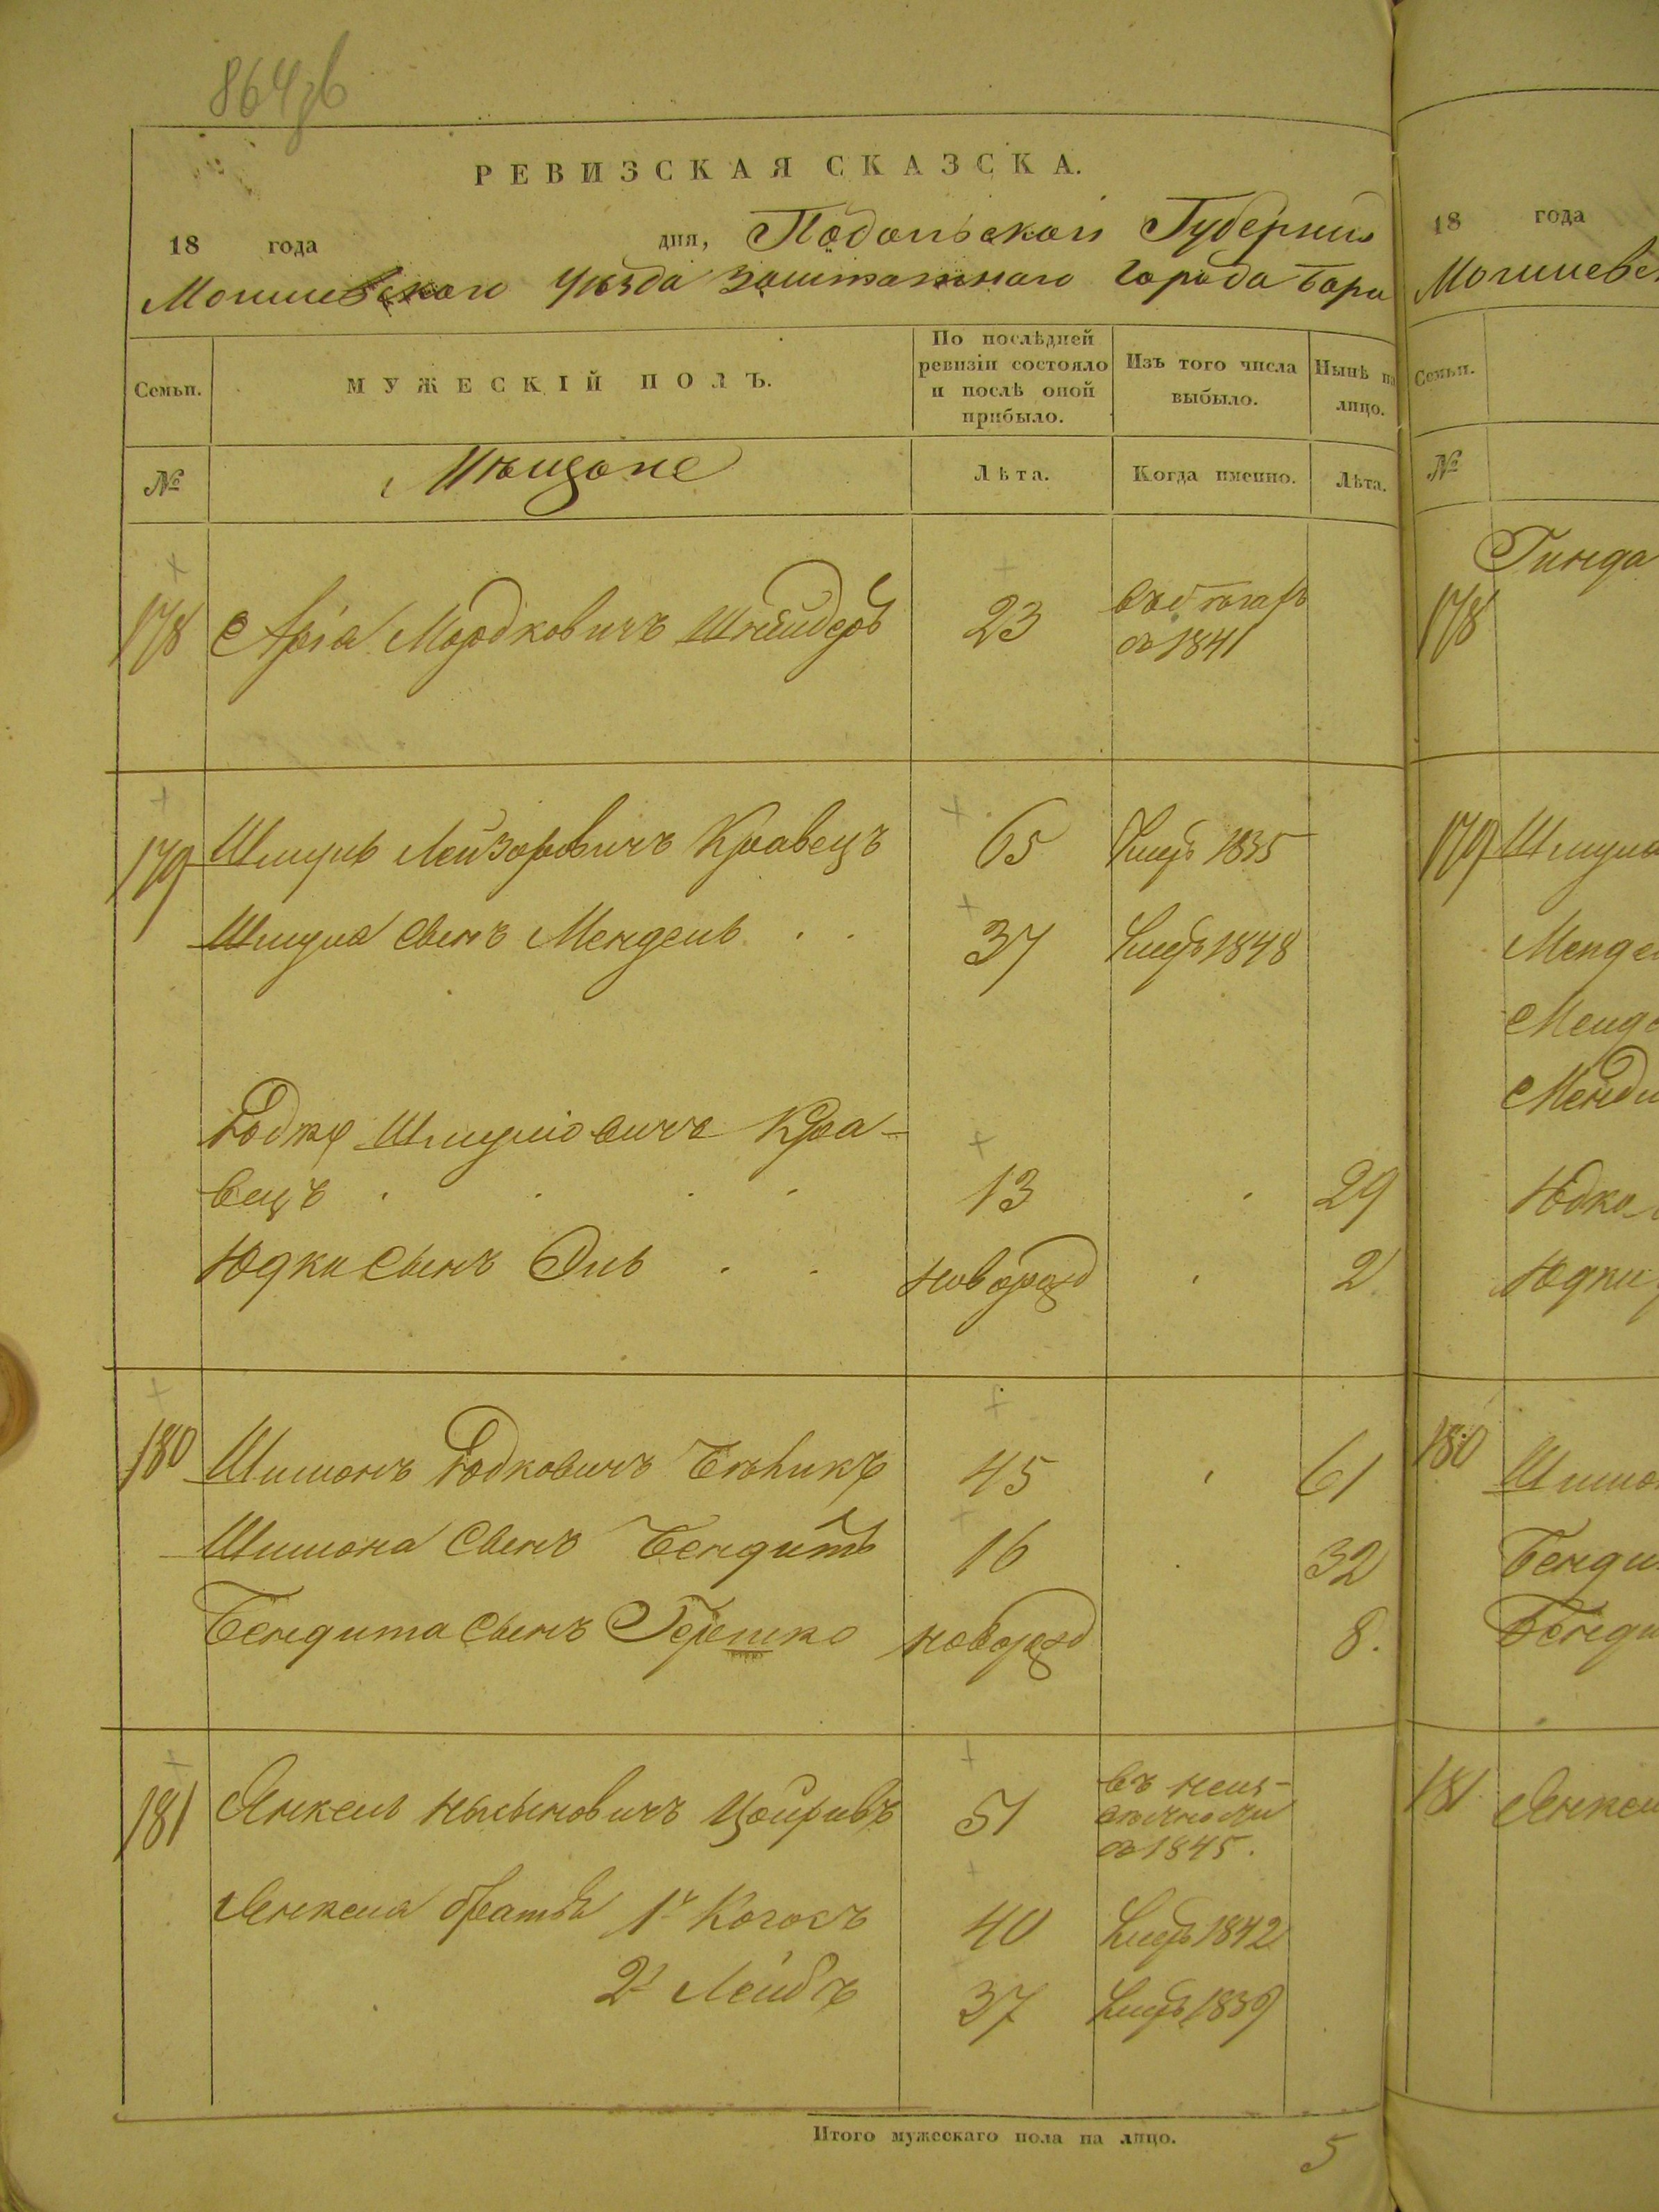 864
РЕВИЗСКАЯ СКАЗСКА.
18 года дня, Подольской Губернии
Могилевского Уѣзда Заштатнаго Города Бара
Семьи. МУЖЕСКІЙ ПОЛЪ. По послѣдней ревизіи состояло и послѣ оной прибыло. Изъ того числа выбыло. Нынѣ на лицо.
№ Мѣщане Лѣта. Когда именно. Лѣта.
178 Арія Мордковичъ Шнайдеръ 23 въ бѣгахъ
съ 1841
179 Шмуль Лейзоровичъ Кравецъ 65 Умеръ 1835
Шмуля сынъ Мендель 37 Умеръ 1848
Юдко Шмулiовичъ Кра-
вецъ 13 29
Юдки сынъ Эль новорожд 2
180 Шимонъ Юдковичъ 45 61
Шимона сынъ Бендитъ 16 32
Бендита сынъ Гершко новорожд 8.
181 Янкель Нысыновичъ 51 въ неиз-
вѣстности
съ 1845.
Янкеля братья 1й 40 Умеръ 1842
2й Лейбъ 37 Умеръ 1839
Итого мужескаго пола на лицо. 5
18 года
Семьи.
№
Гинда
178
179 Шмуля
180
181